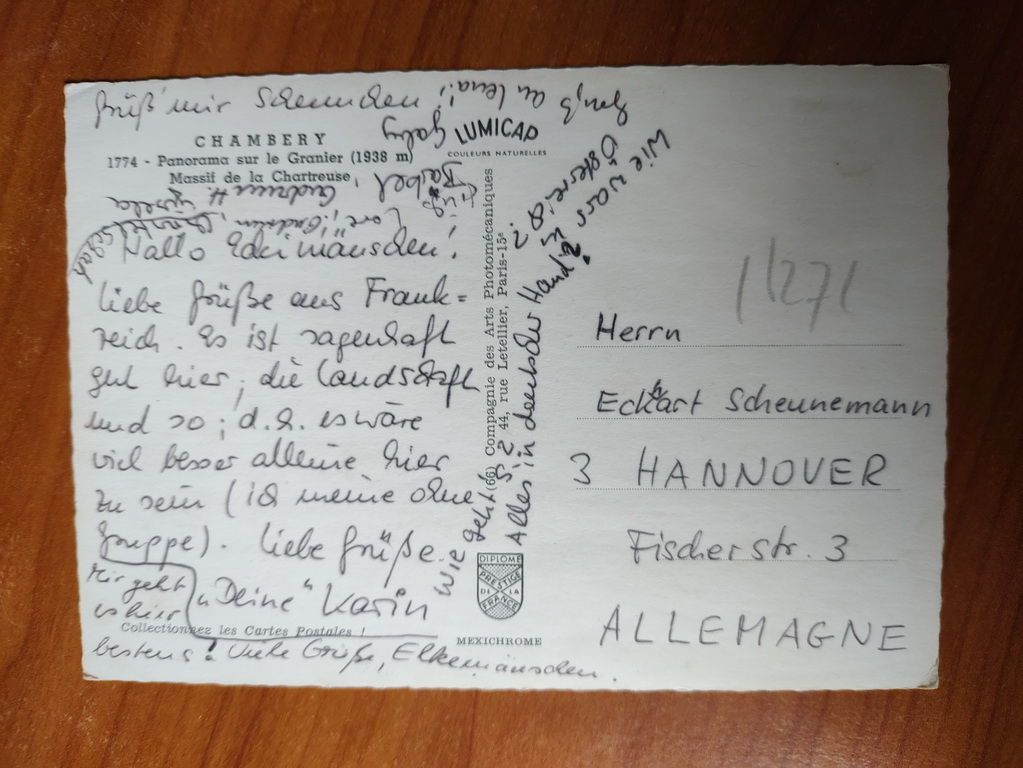 Grüß mir Scheunchen!
Gruß an Lena!!
Gaby
CHAMBERY
1774 - Panorama sur le Granier (1938 m)
Massif de la Chartreuse
LUMICAP
COULEURS NATURELLES
Bärbel
Andreas H. Gisela
Hallo Eckimäuschen!
liebe Grüße aus Frank=
reich. Es ist sagenhaft
gut hier, die Landschaft
und so; d.h. es wäre
viel besser alleine hier
zu sein (ich meine ohne
Gruppe). Liebe Grüße
"Deine" Karin
Mir geht
es hier
bestens! Viele Grüße, Elkemäuschen.
Collectionnez les Cartes Postales !
MEXICHROME
Wie geht's?
Alles in deutscher Hand?
Wie war's in
Österreich?
(66) Compagnie des Arts Photomécaniques
44, rue Letellier, Paris-15e
DIPLOME
PRESTIGE
DE LA
FRANCE
11271
Herrn
Eckhart Scheunemann
3 HANNOVER
Fischerstr. 3
ALLEMAGNE